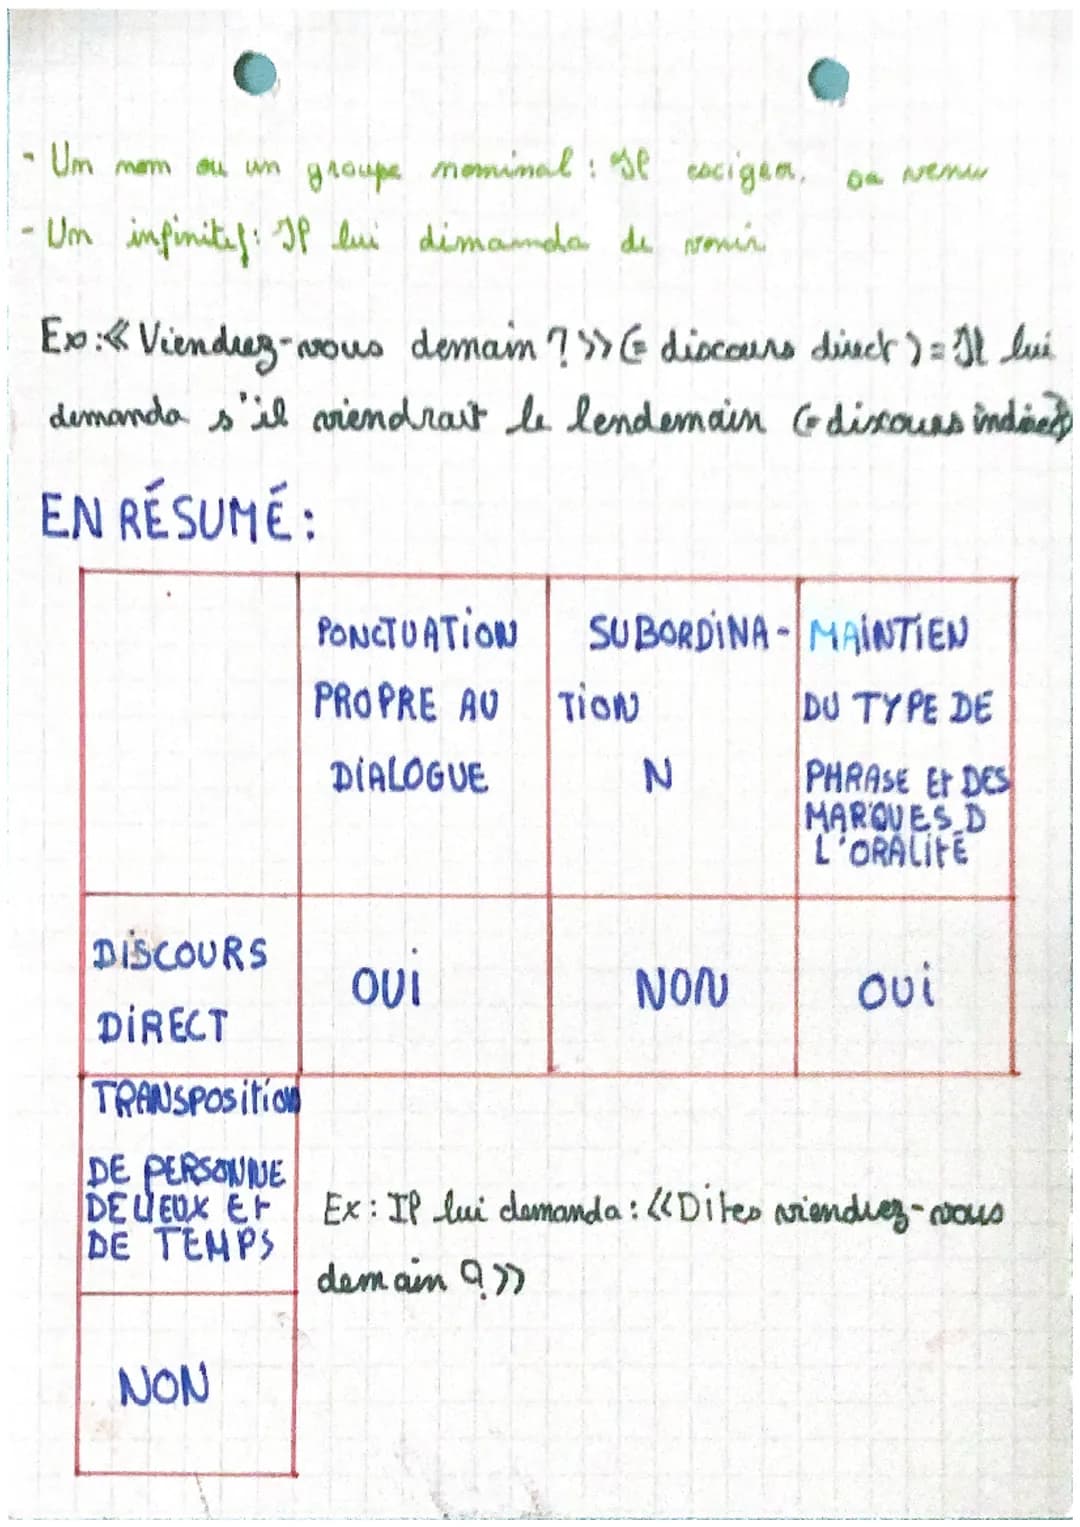 - Un nom ou un groupe nominal : Il exigea, sa venue
- Un infinitif : Il lui dimanda de venir
Ex : « Viendrez-vous demain ? » (= discours direct) = Il lui
demanda s'il viendrait le lendemain (= discours indirect)
EN RÉSUMÉ :
PONCTUATION
PROPRE AU
DIALOGUE
SUBORDINA-
TION
N
MAINTIEN
DU TYPE DE
PHRASE ET DES
MARQUES D
L'ORALITÉ
DISCOURS
DIRECT
OUI
NON
OUI
TRANSPOSITION
DE PERSONNE
DE LIEUX ET
DE TEMPS
Ex : Il lui demanda : « Dites viendrez-vous
demain ? »
NON